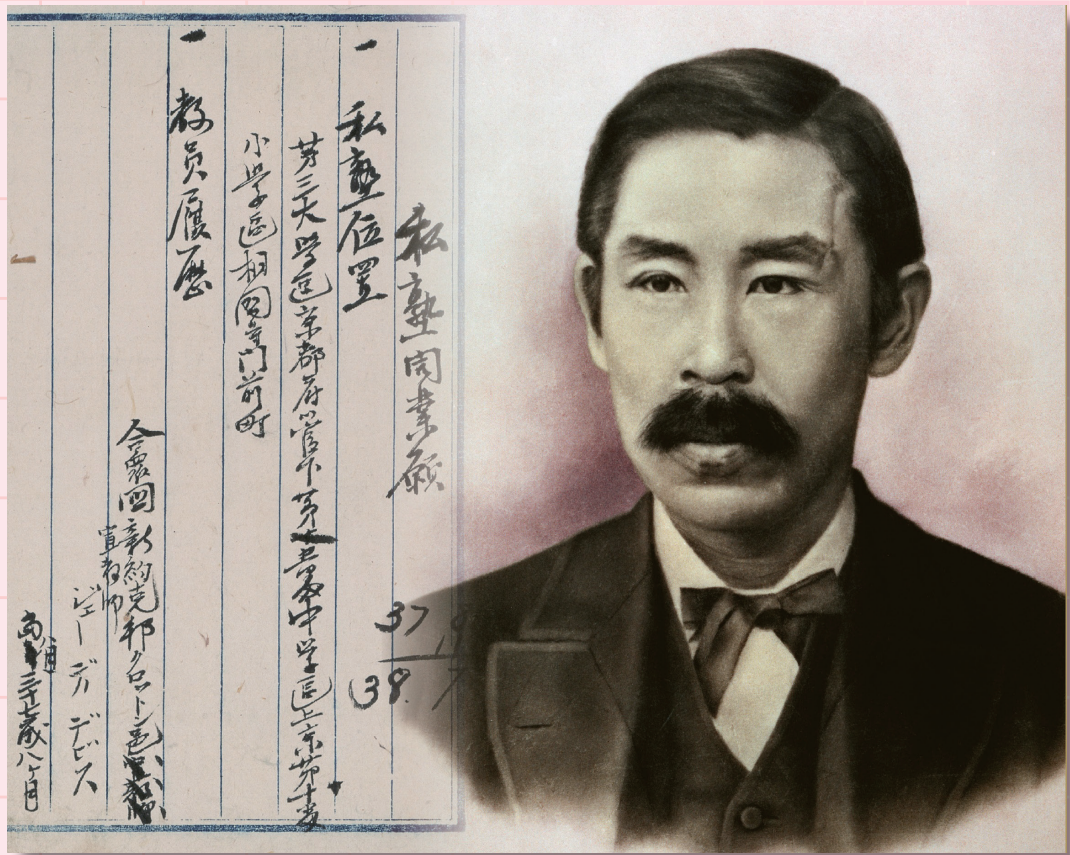 私塾開業願
一 私塾位置
第三大學區京都府管下第 番中學區上京第十
小學區相国寺門前町
一 教員履歴
合衆國新約克邦クロットン邑
宣教師
ジェー デイ デビス
三十七歳八ヶ月
37
38.